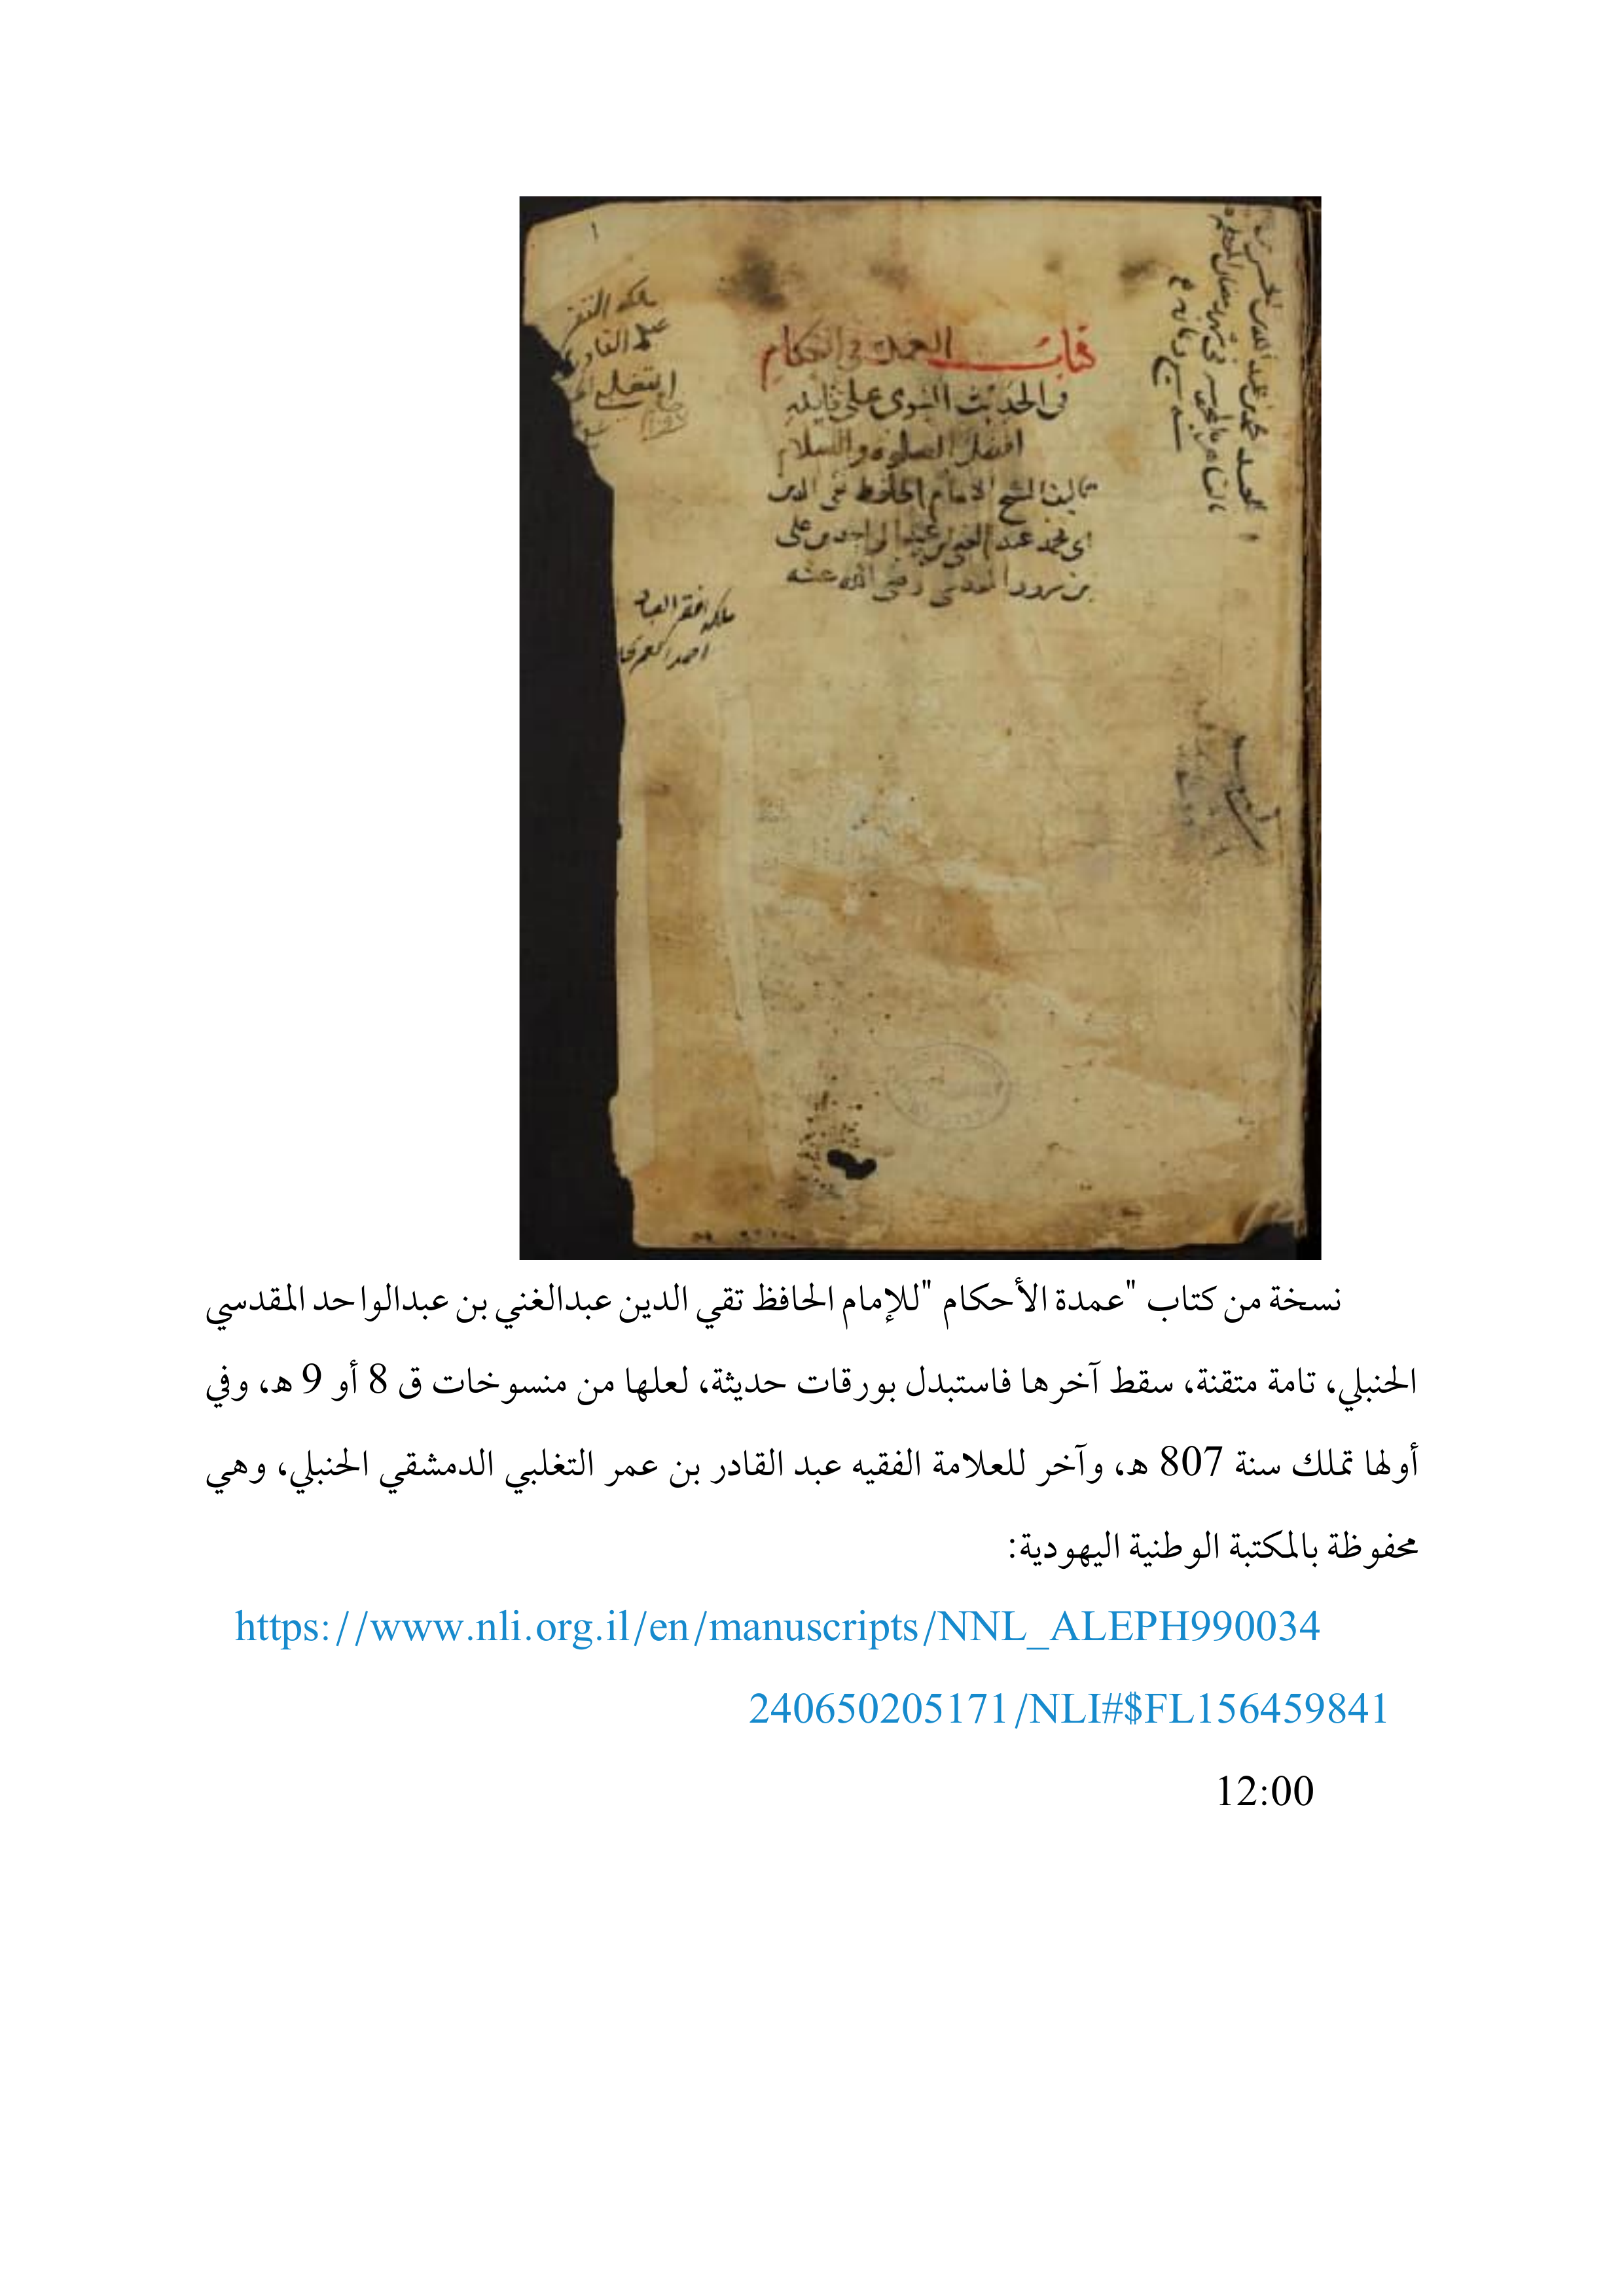 ١
كتاب العمدة في الأحكام
في الحديث النبوي على قايله
افضل الصلوة والسلام
تاليف الشيخ الامام الحافظ تقي الدين
ابي محمد عبد الغني بن عبد الواحد بن علي
بن سرور المقدسي رضي الله عنه
ملكه الفقير
عبد القادر
التغلبي
ملكه افقر العباد
احمد
نسخة من كتاب "عمدة الأحكام "للإمام الحافظ تقي الدين عبدالغني بن عبدالواحد المقدسي
الحنبلي، تامة متقنة، سقط آخرها فاستبدل بورقات حديثة، لعلها من منسوخات ق 8 أو 9 هـ، وفي
أولها تملك سنة 807 هـ، وآخر للعلامة الفقيه عبد القادر بن عمر التغلبي الدمشقي الحنبلي، وهي
محفوظة بالمكتبة الوطنية اليهودية:
https://www.nli.org.il/en/manuscripts/NNL_ALEPH990034
240650205171/NLI#$FL156459841
12:00